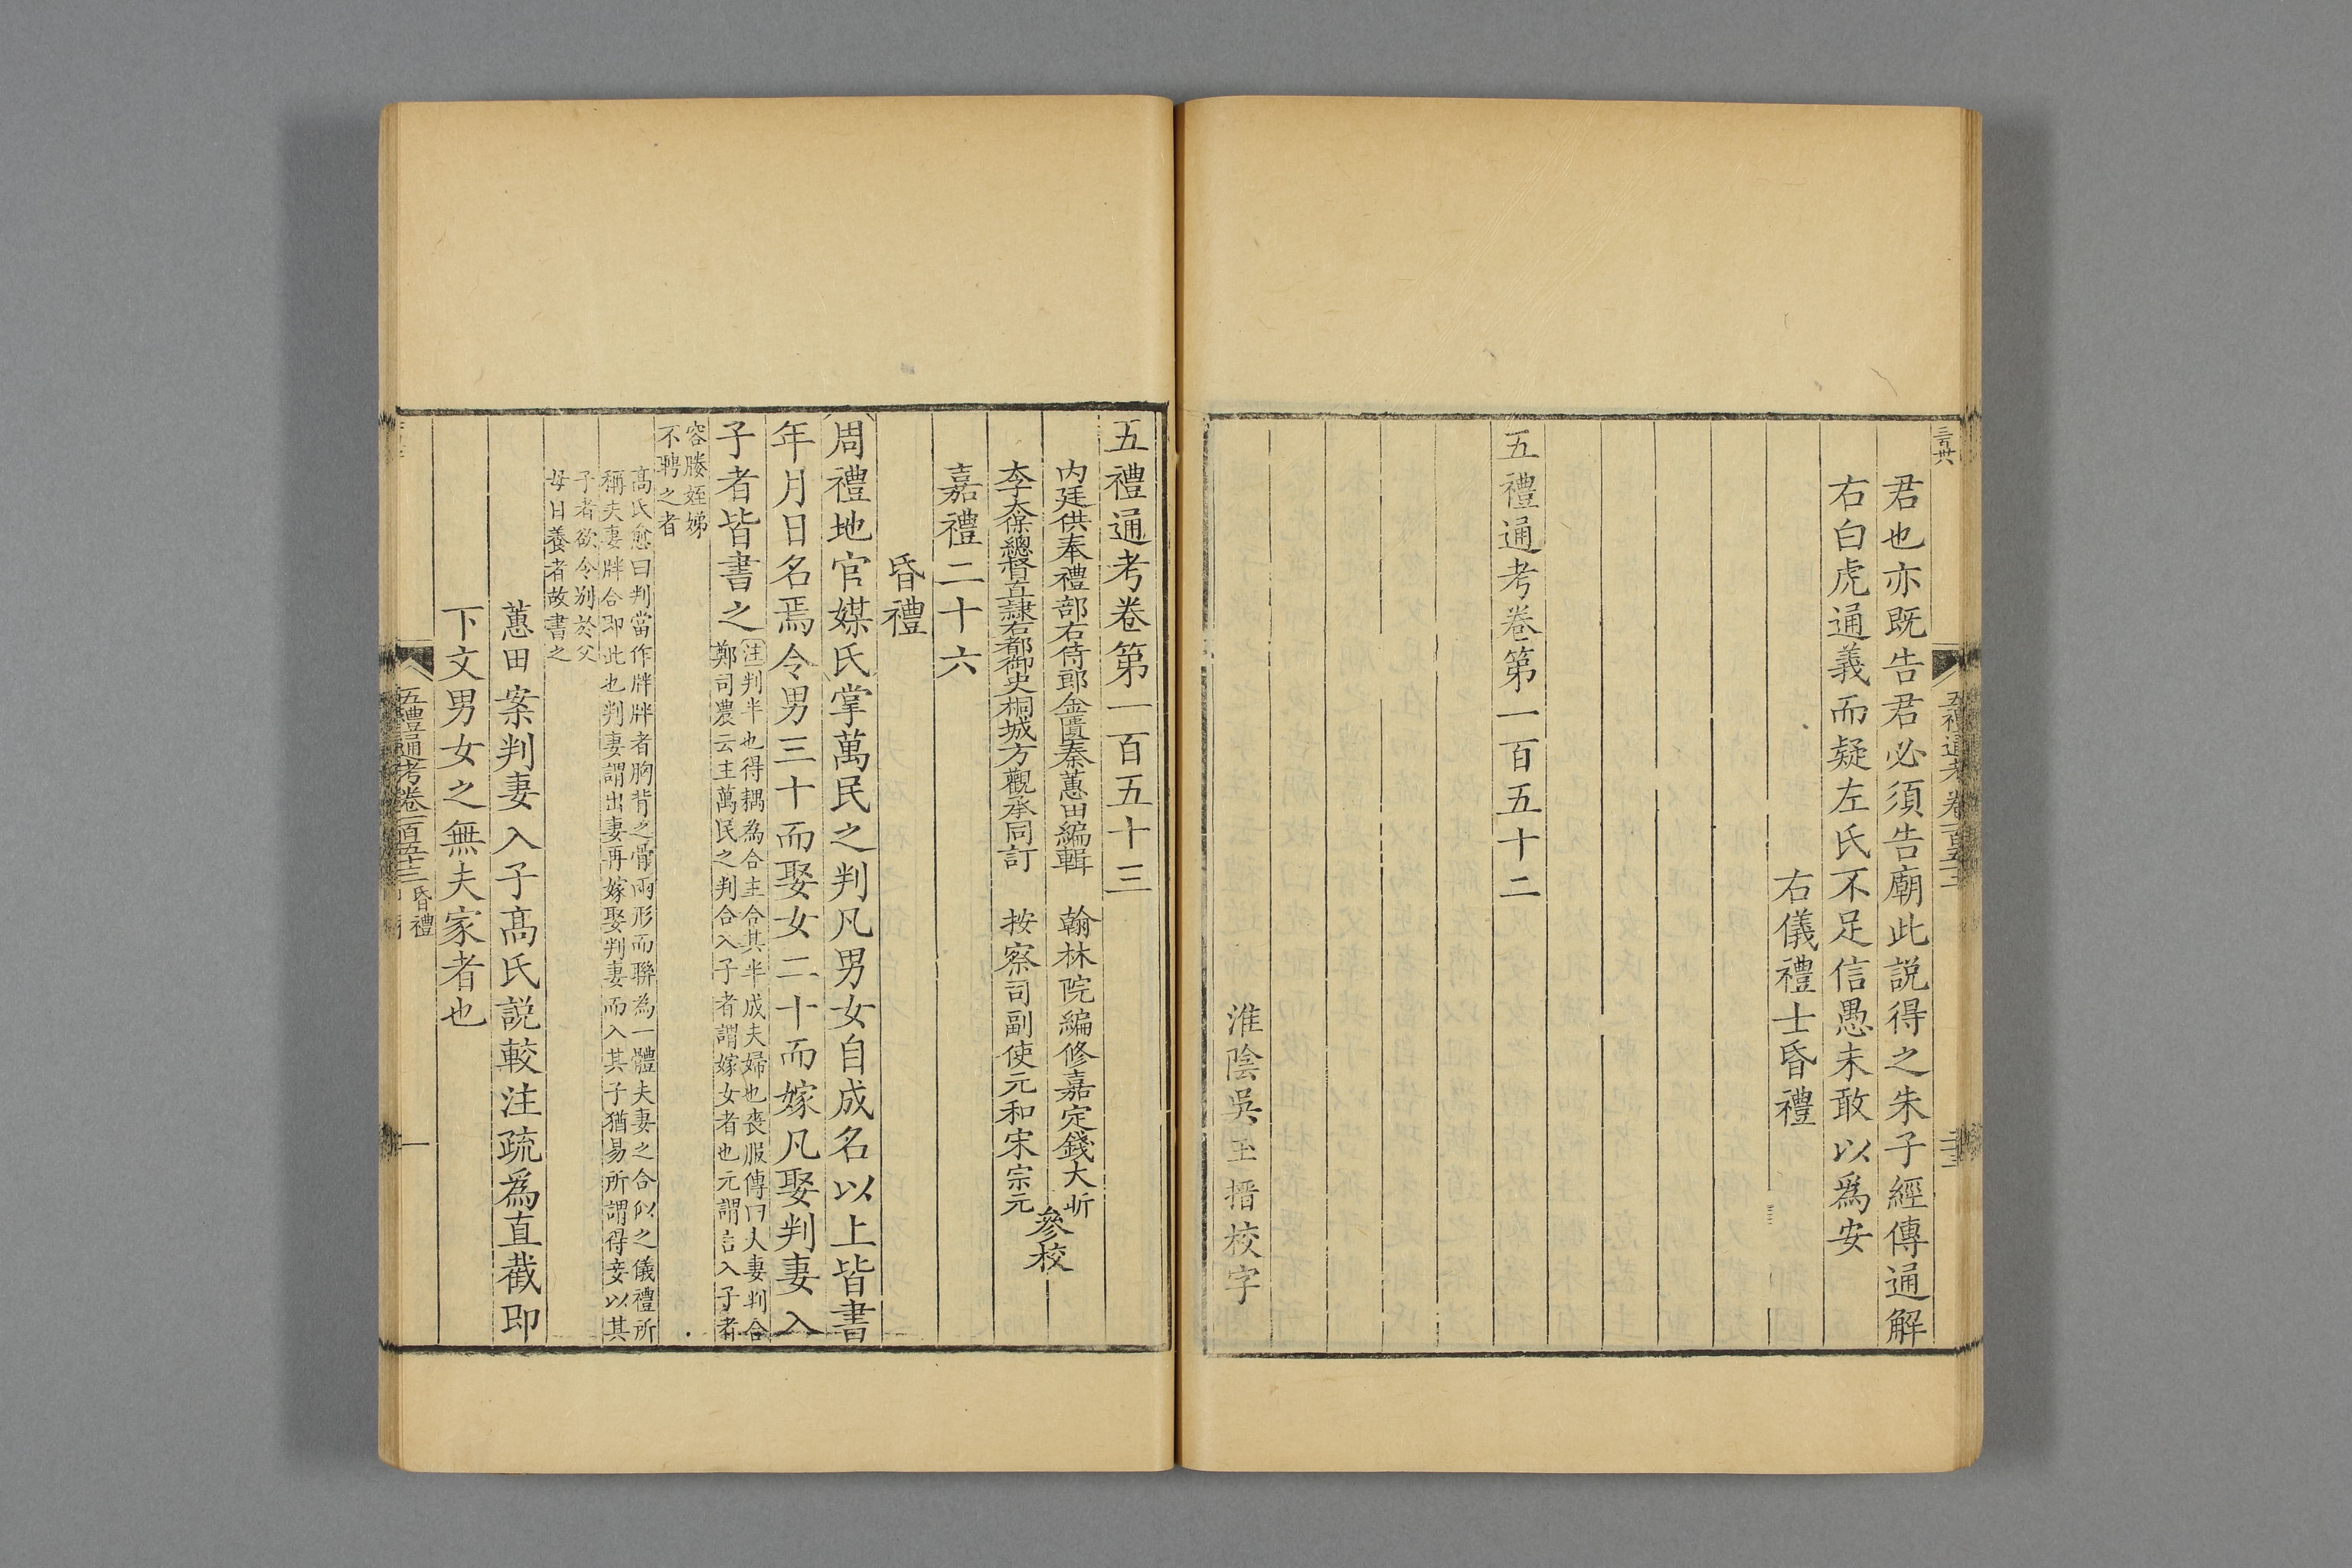 君也亦既告君必須告廟此説得之朱子經傳通解
右白虎通義而疑左氏不足信愚未敢以爲安
右儀禮士昏禮
五禮通考卷第一百五十二
淮陰吳玉搢校字
五禮通考卷第一百五十三
内廷供奉禮部右侍郎金匱秦蕙田編輯 翰林院編修嘉定錢大昕
太子太保總督直隸右都御史桐城方觀承同訂 按察司副使元和宋宗元
參校
嘉禮二十六
昏禮
周禮地官媒氏掌萬民之判凡男女自成名以上皆書
年月日名焉令男三十而娶女二十而嫁凡娶判妻入
子者皆書之
注判半也得耦為合主合其半成夫婦也喪服傳曰夫妻判合
鄭司農云主萬民之判合入子者謂嫁女者也元謂言入子者
容媵姪娣
不聘之者
高氏愈曰判當作牉牉者胸背之骨兩形而聯為一體夫妻之合似之儀禮所
稱夫妻牉合即此也判妻謂出妻再嫁娶判妻而入其子猶易所謂得妾以其
子者欲令别於父
母曰養者故書之
蕙田案判妻入子高氏説較注疏爲直截即
下文男女之無夫家者也
五禮通考卷一百五十三 昏禮
一